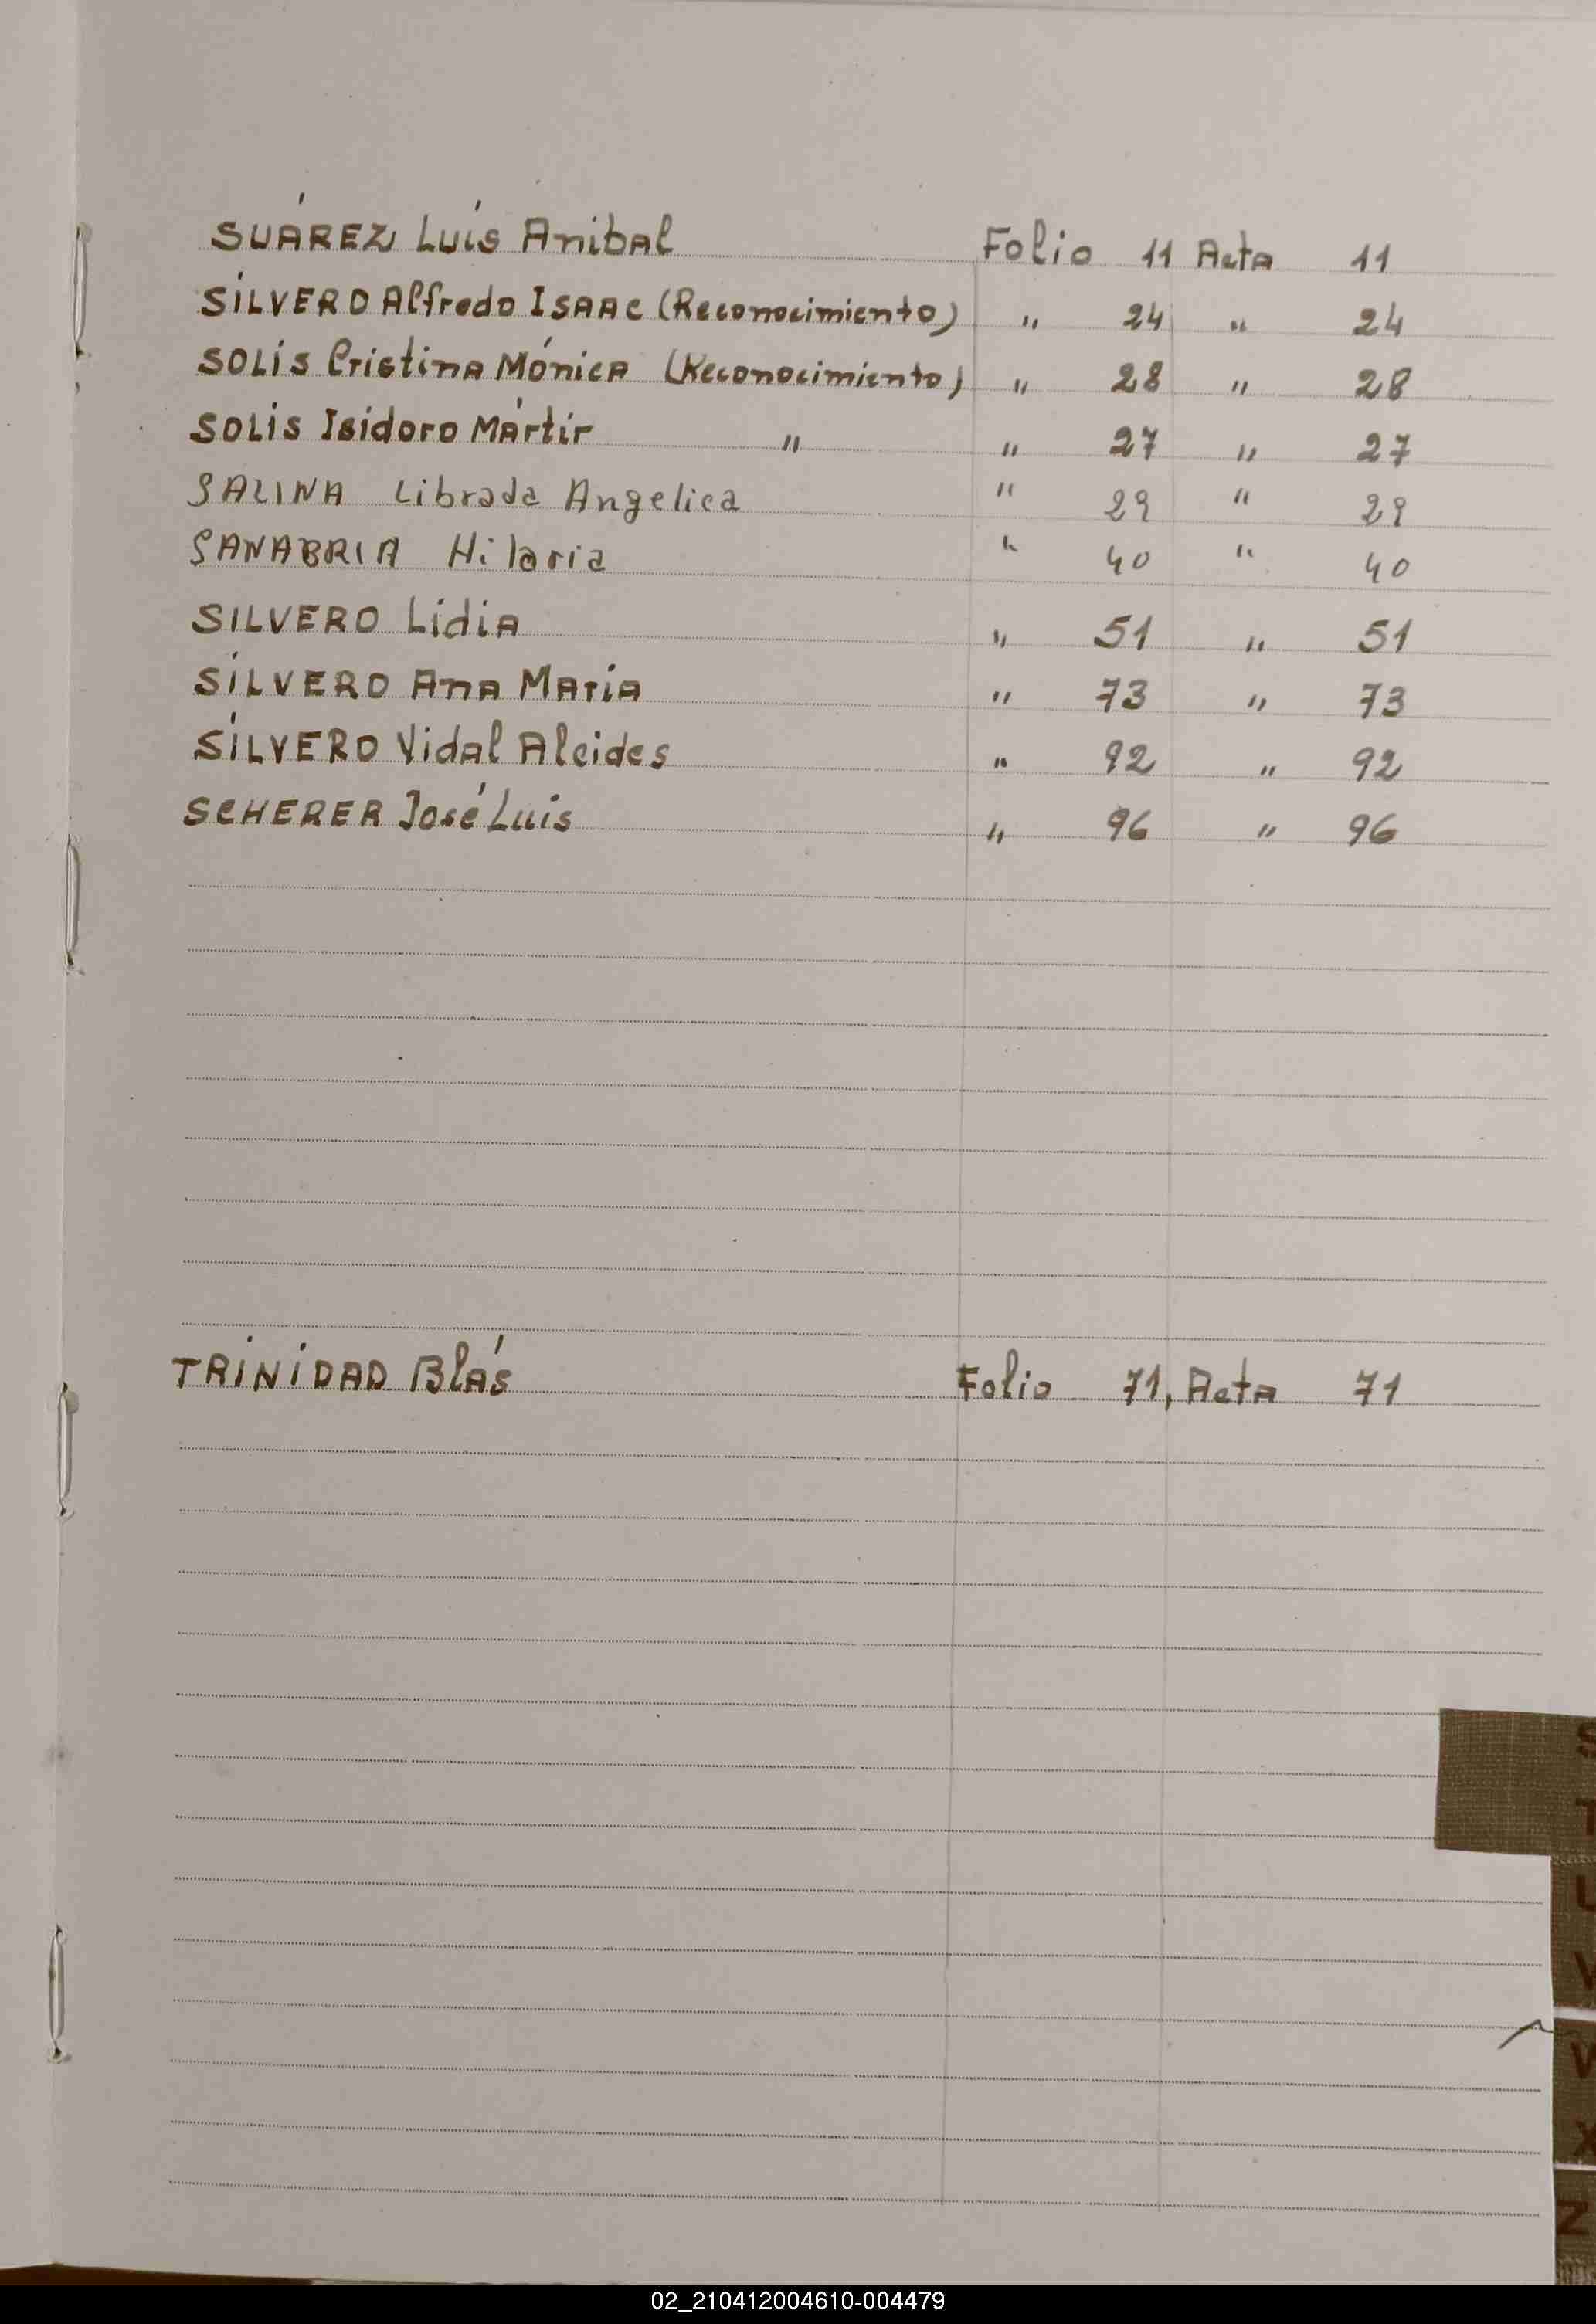 SUÁREZ Luís Anibal Folio 11 Acta 11
SILVERO Alfredo ISAAC (Reconocimiento) " 24 " 24
SOLIS Cristina Mónica (Reconocimiento) " 28 " 28
SOLIS Isidoro Mártir " " 27 " 27
SALINA Librada Angelica " 29 " 29
SANABRIA Hilaria " 40 " 40
SILVERO Lidia " 51 " 51
SILVERO Ana Maria " 73 " 73
SILVERO Vidal Alcides " 92 " 92
SCHERER José Luis " 96 " 96
TRINIDAD Blás Folio 71, Acta 71
S
T
U
V
W
X
Z
02_210412004610-004479